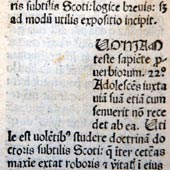 ris subtilis Scoti: logice breuis: sʒ
ad modū utilis expositio incipit.
teste sapiēte
uerbiorum. 22º
Adolescēs iuxta
uiā suā etiā cum
senuerit nō rece
det ab ea. Uti
le est uolētibꝰ studere doctrinā do
ctoris subtilis Scoti: q̄ iter cēteās
maxīe extat roboris ⁊